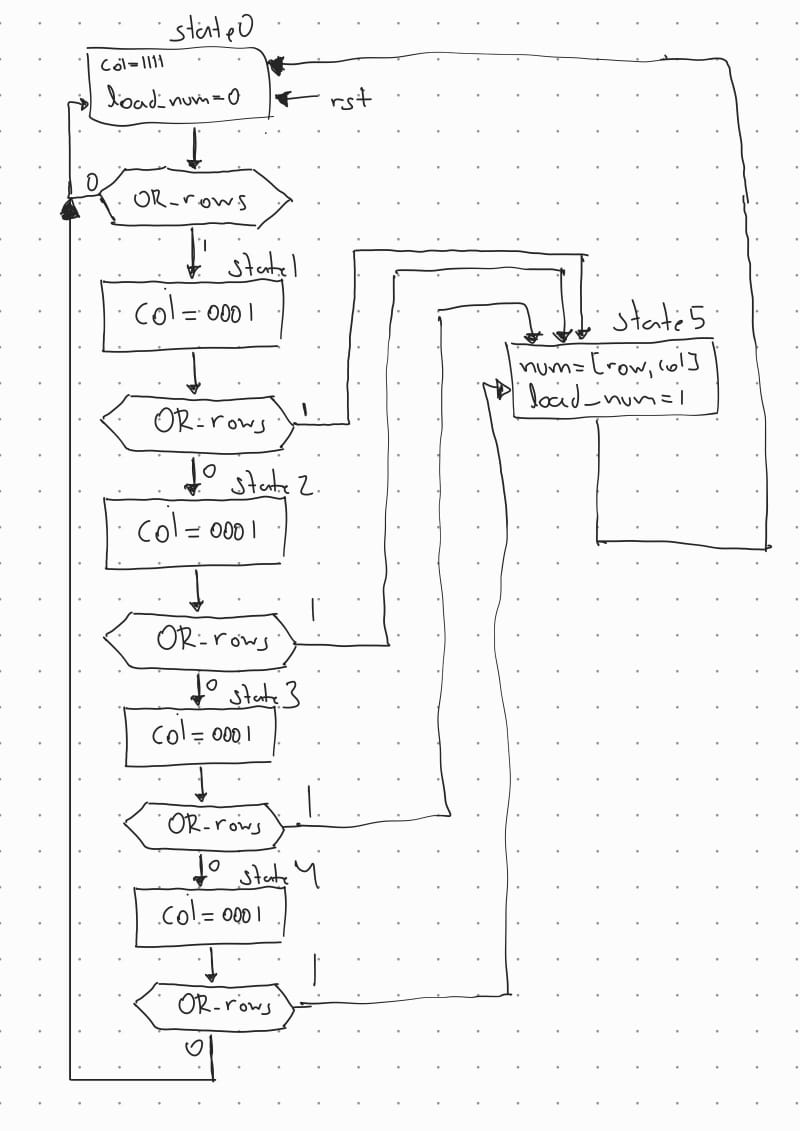 state0
Col=1111
load_num=0
rst
0
OR_rows
1
state1
Col=0001
OR-rows
1
0
state2
Col=0001
OR-rows
1
0
state3
Col=0001
OR-rows
1
0
state4
Col=0001
OR-rows
1
0
state5
num=[row,col]
load_num=1